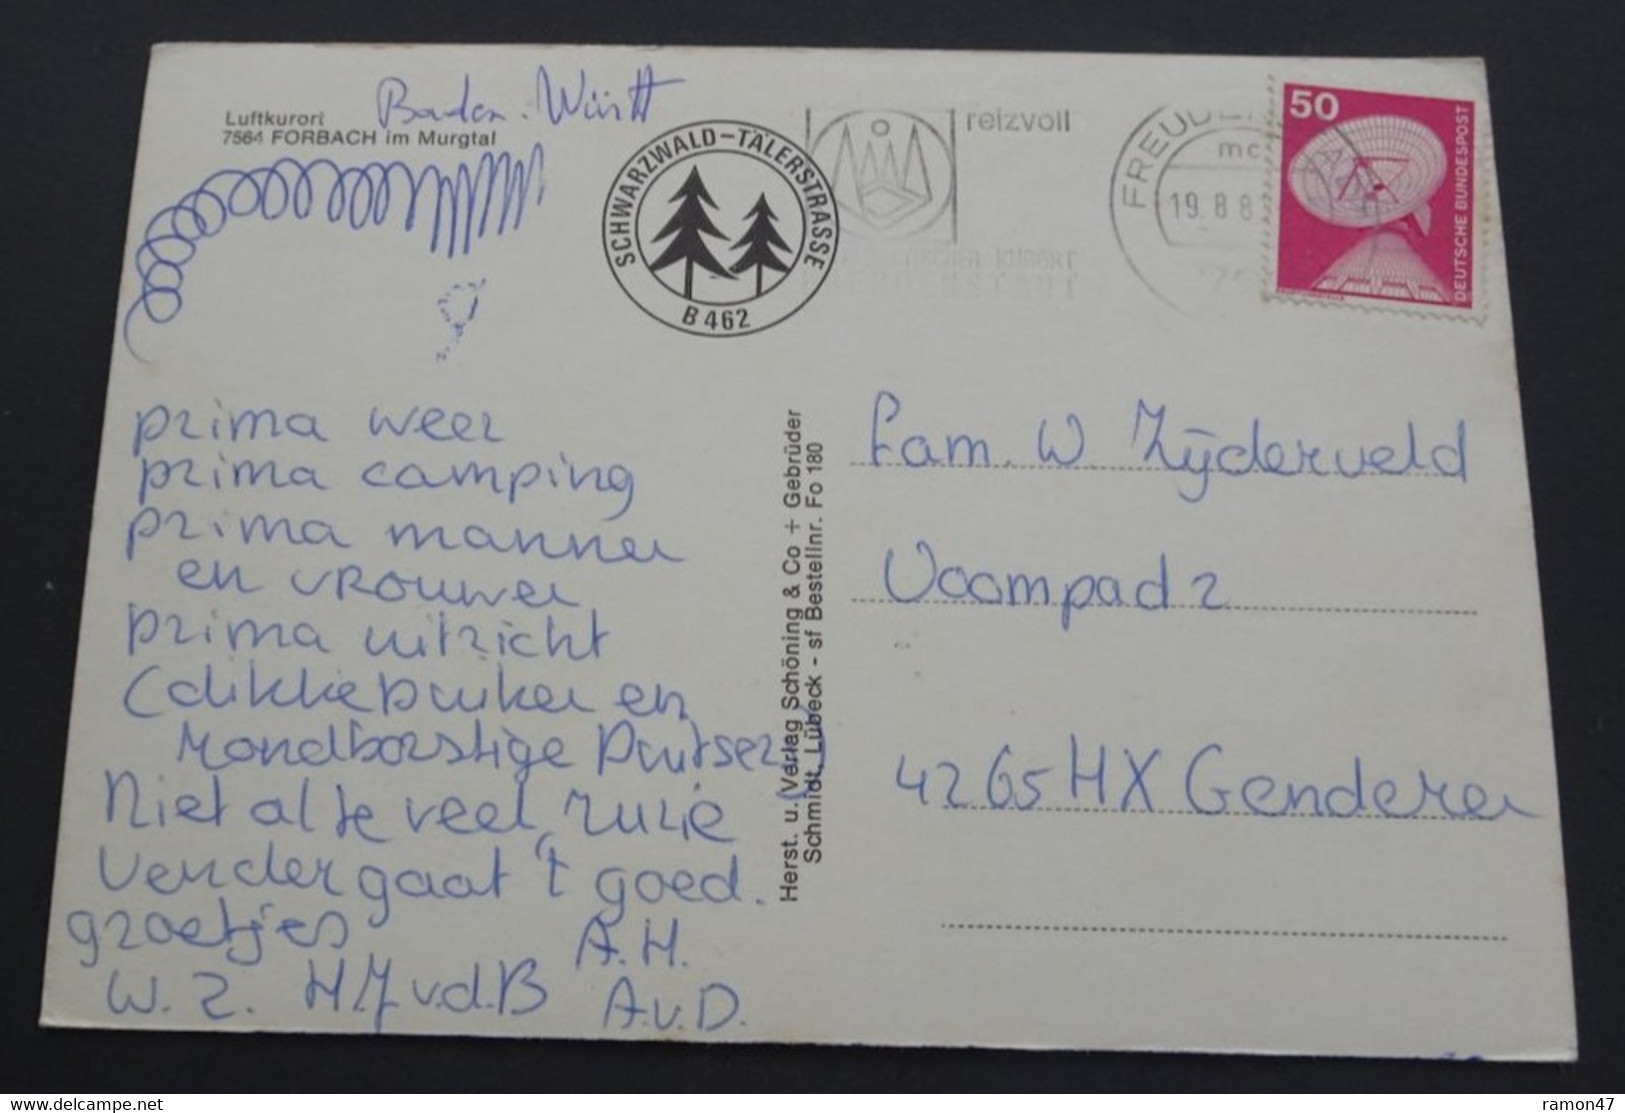 Baden-Württ
Luftkurort
7564 FORBACH im Murgtal
SCHWARZWALD-TÄLERSTRASSE
B 462
reizvoll
19.8.8
50
DEUTSCHE BUNDESPOST
prima weer
prima camping
prima mannen
en vrouwen
prima uitzicht
(dikke buiken en
rondborstige Duitsers)
Niet al te veel ruzie
Verder gaat 't goed.
groetjes A.H.
W.Z. H.J. v.d.B A.v.D.
Herst. u. Verlag Schöning & Co + Gebrüder
Schmidt, Lübeck - sf Bestellnr. Fo 180
Fam. W. Zijderveld
Doornpad 2
4265 HX Genderen
ramon47